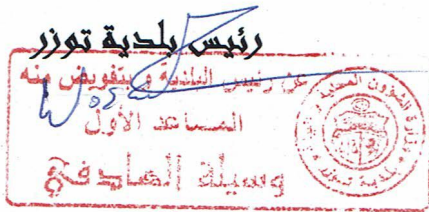 رئيس بلدية توزر
عن رئيس البلدية وبتفويض منه
المساعد الأول
وسيلة الصادقي
بلدية توزر